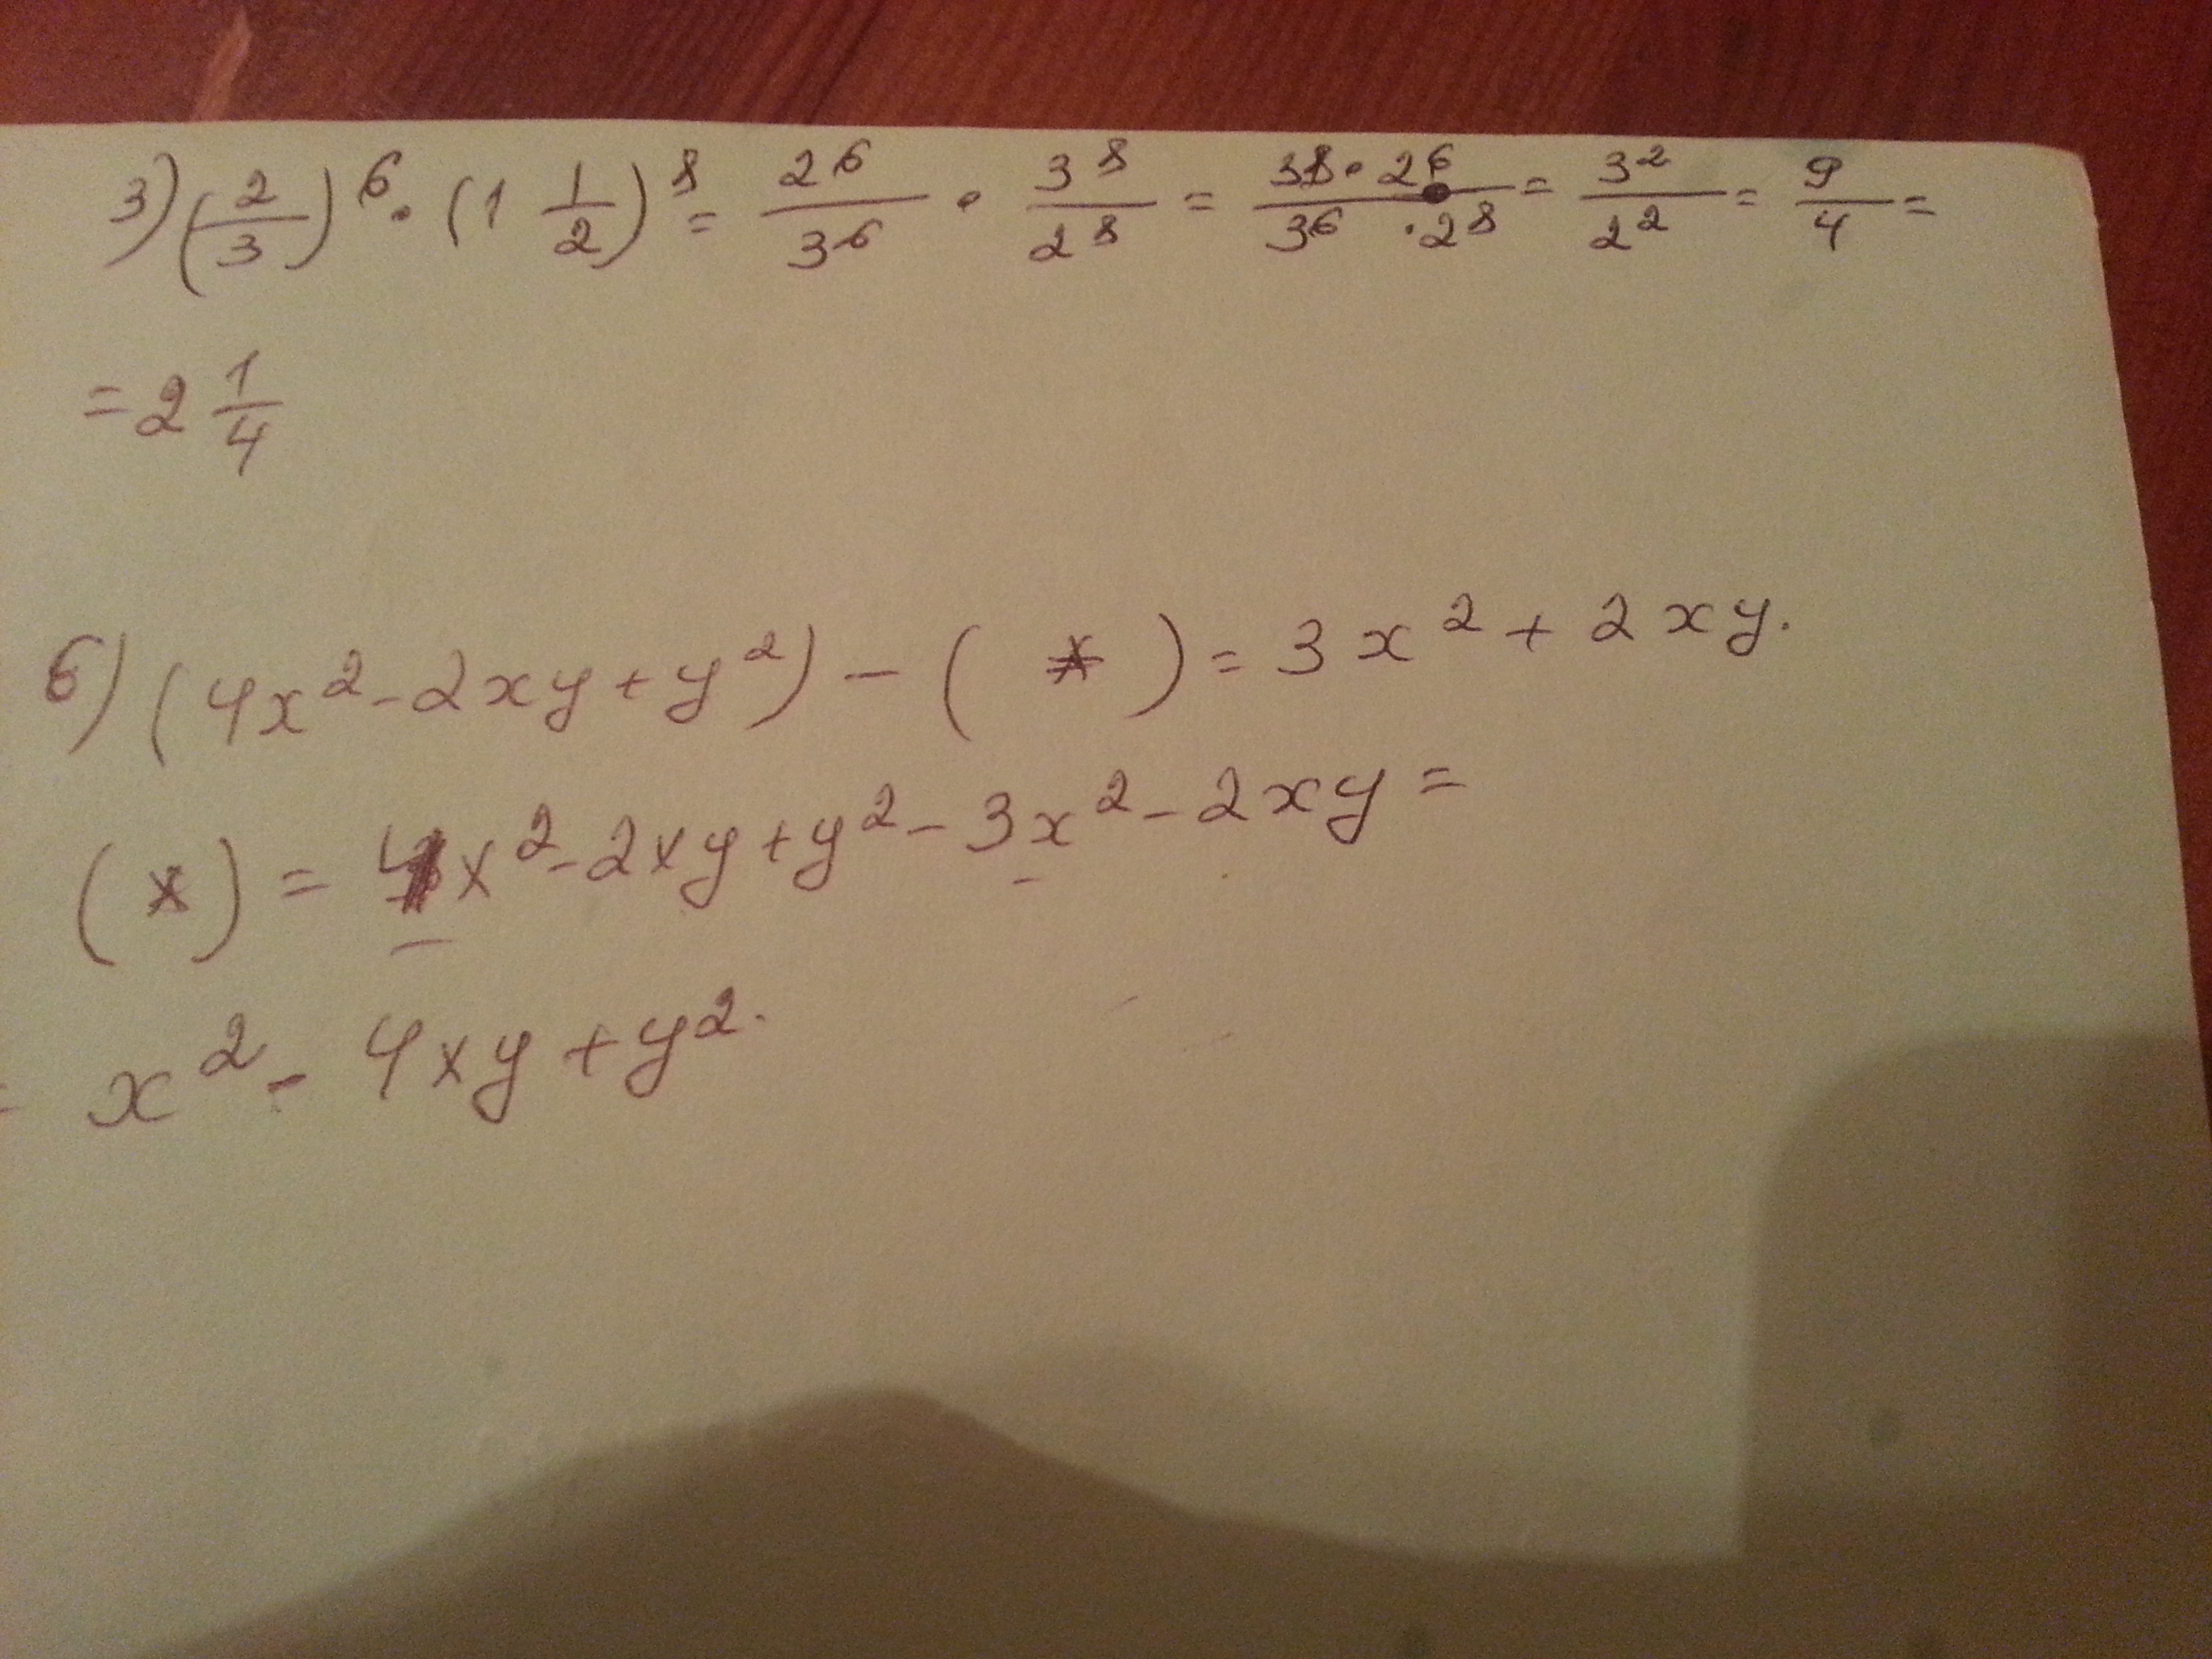 3) (2/3)^6 · (1 1/2)^8 = 2^6/3^6 · 3^8/2^8 = 3^8 · 2^6 / 3^6 · 2^8 = 3^2/2^2 = 9/4 =
= 2 1/4
6) (4x^2 - 2xy + y^2) - ( * ) = 3x^2 + 2xy.
( * ) = 4x^2 - 2xy + y^2 - 3x^2 - 2xy =
= x^2 - 4xy + y^2.